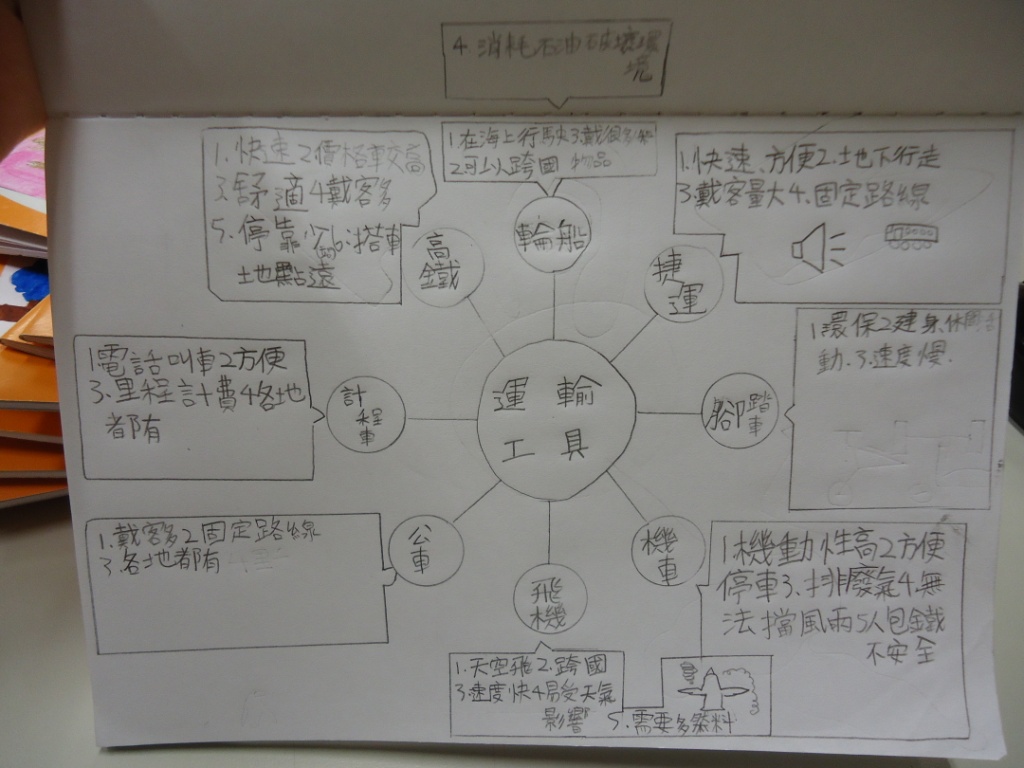 4.消耗石油破壞環
境
1.快速2價格較高
3舒適4戴客多
5.停靠少6.搭車
土地點遠
1.在海上行駛3戴很多
2可以跨國 物品
1.快速、方便2.土地下行走
3戴客量大4.固定路線
高
鐵
輪船
捷
運
1電話叫車2方便
3.里程計費4各地
都有
計
程
車
運輸
工具
腳踏
車
1環保2建身休閒
動.3速度慢.
1.戴客多2固定路線
3各地都有
公
車
飛
機
機
車
1機動性高2方便
停車3.排廢氣4.無
法擋風雨5人包鐵
不安全
1.天空飛2.跨國
3速度快4易受天氣
影響
5.需要多燃料